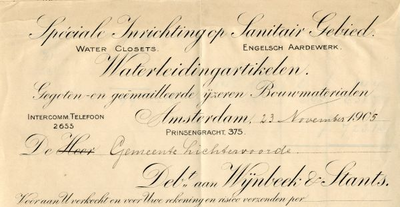 Speciale Inrichting op Sanitair Gebied.
WATER CLOSETS. ENGELSCH AARDEWERK.
Waterleidingartikelen.
Gegoten- en geëmailleerde ijzeren Bouwmaterialen
INTERCOMM. TELEFOON
2655
Amsterdam, 23 November 1905
PRINSENGRACHT, 375.
De Heer Gemeente Lichtevoorde
Deb.r aan Wijnbeek & Stants.
Voor aan U verkocht en voor Uwe rekening en risico verzonden per